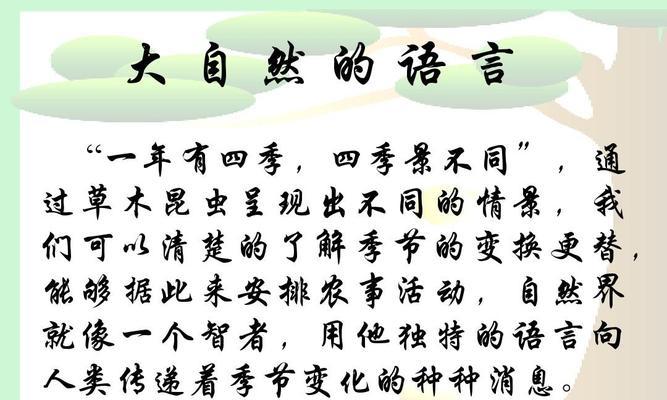 大自然的语言
“一年有四季，四季景不同”，通
过草木昆虫呈现出不同的情景，我
们可以清楚的了解季节的变换更替，
能够据此来安排农事活动，自然界
就像一个智者，用他独特的语言向
人类传递着季节变化的种种消息。